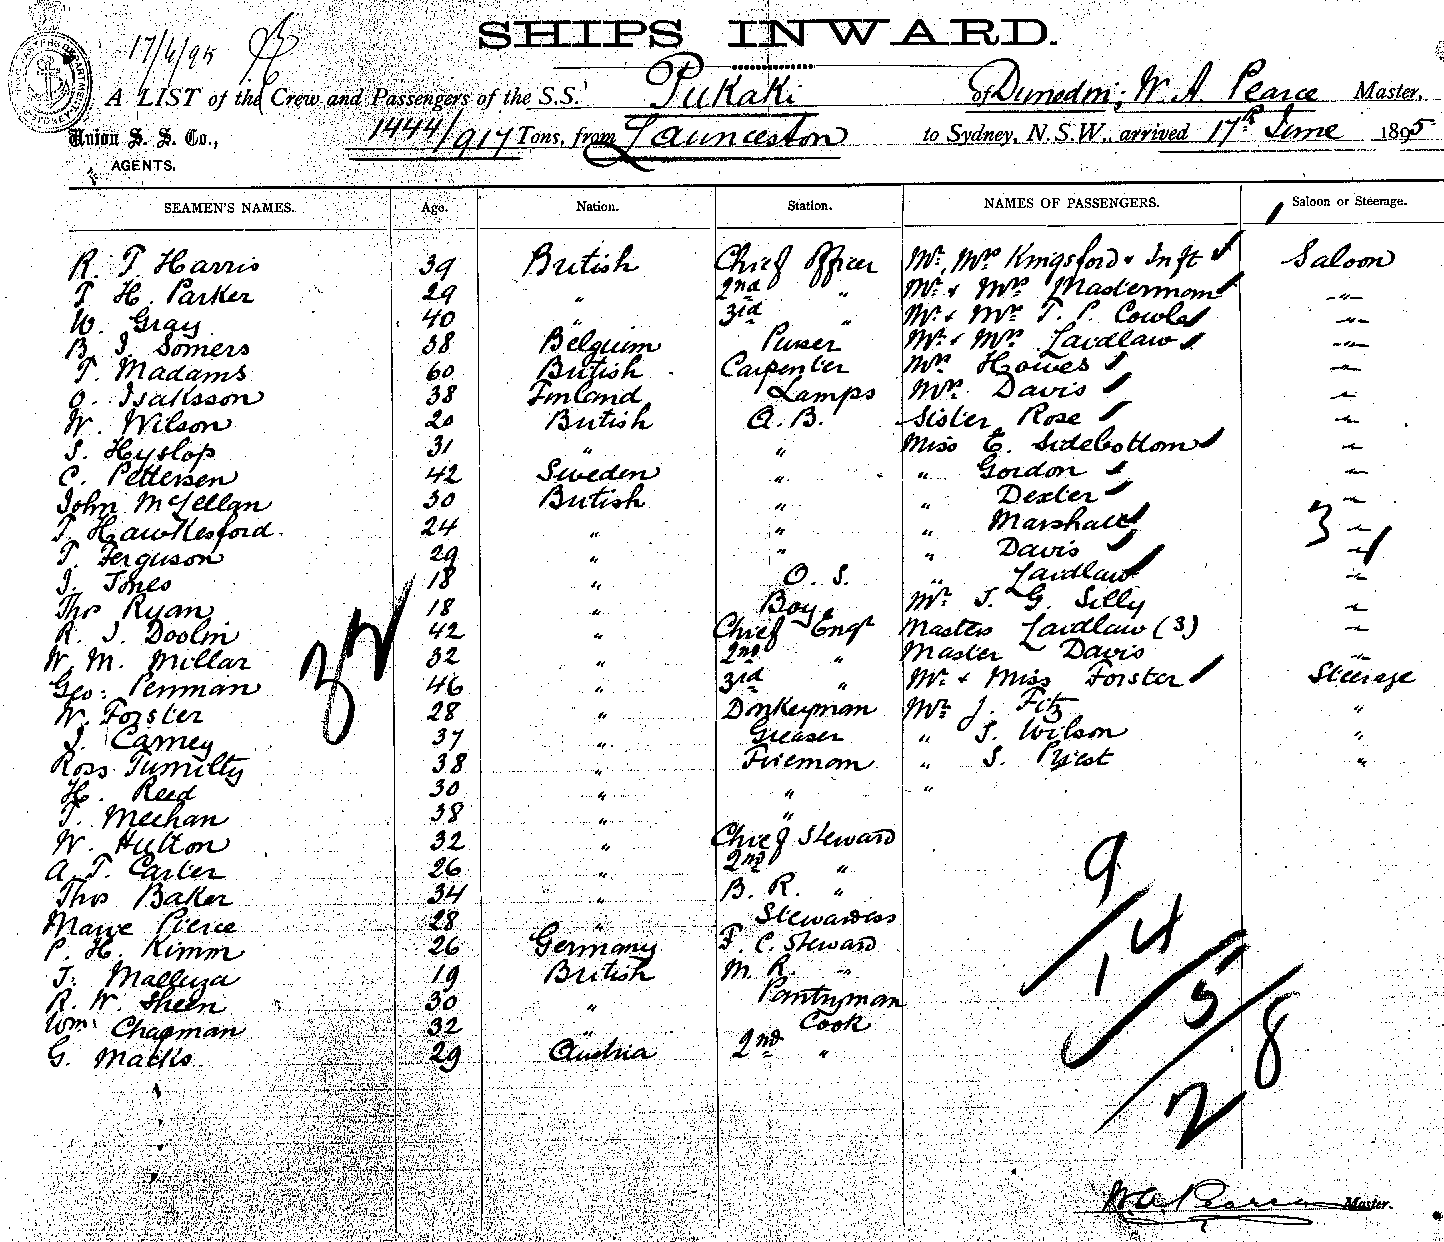 SHIPS INWARD.
17/6/95
A LIST of the Crew and Passengers of the S.S. Pukaki of Dunedin, W. A. Pearce Master,
Union S. S. Co., AGENTS. 1444/917 Tons, from Launceston to Sydney, N.S.W., arrived 17th June 1895
SEAMEN'S NAMES. Age. Nation. Station. NAMES OF PASSENGERS. Saloon or Steerage.
R. T Harris 39 British Chief Officer Mr, Mrs Kingsford & Inft Saloon
T H. Parker 29 " 2nd " Mr & Mrs Masterman "
W. Gray 40 " 3rd " Mr & Mrs T. P. Cowle "
B J. Somers 38 Belgium Purser Mr & Mrs Laidlaw "
T. Madams 60 British Carpenter Mrs Howes "
O. Isaksson 38 Finland Lamps Mrs Davis "
W. Wilson 20 British A. B. Sister Rose "
S. Hyslop 31 " " Miss E. Sidebottom "
C. Pettersen 42 Sweden " " Gordon "
John McLellan 30 British " " Dexter "
T. Hawkesford 24 " " " Marshall "
T. Ferguson 29 " " " Davis "
J. Jones 18 " O. S. " Laidlaw "
Thos Ryan 18 " Boy Mr J. G. Silly "
R. J. Doolin 42 " Chief Engr Masters Laidlaw (3) "
W. M. Millar 32 " 2nd " Master Davis "
Geo: Penman 46 " 3rd " Mr & Miss Forster Steerage
W. Forster 28 " Donkeyman Mr J. Fitz "
J. Carney 37 " Greaser " S. Wilson "
Ross Tumilty 38 " Fireman " S. Priest "
H. Reed 30 " " "
T. Meehan 38 "
W. Hutton 32 " Chief Steward
A. T. Carter 26 " 2nd "
Thos Baker 34 " B. R. "
Pierce 28 " Stewardess
P. H. Kimm 26 Germany F. C. Steward
J. 19 British M. R. "
R. W. Sheen 30 " Pantryman
Wm. Chapman 32 " Cook
G. Macks 29 Austria 2nd "
32
3
9
14
5
8
2
W. A. Pearce Master.